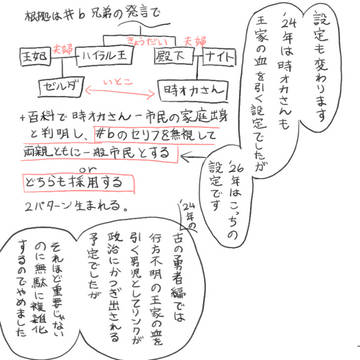 根拠は#b兄弟の発言で
夫婦
きょうだい
夫婦
王妃
ハイラル王
殿下
ナイト
ゼルダ
いとこ
時オカさん
+百科で時オカさん=市民の家庭出身
と判明し、#bのセリフを無視して
両親ともに一般市民とする
or
どちらも採用する
2パターン生まれる。
設定も変わります
'24年は時オカさんも
王家の血を引く設定でしたが
'26年はこっちの
設定です
'24年の
古の勇者編では
行方不明の王家の血を
引く男児としてリンクが
政治にかつぎ出される
予定でしたが
それほど重要じゃない
のに無駄に複雑化
するのでやめました